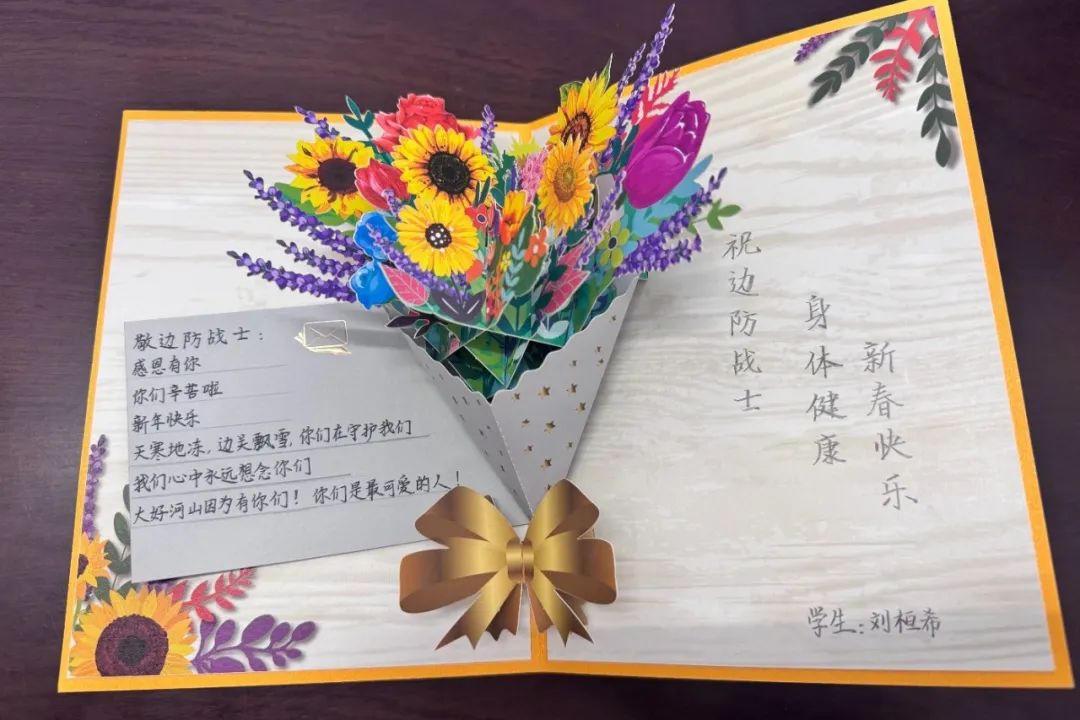 敬边防战士：
感恩有你
你们辛苦啦
新年快乐
天寒地冻，边关飘雪，你们在守护我们
我们心中永远想念你们
大好河山因为有你们！你们是最可爱的人！
祝边防战士
身体健康
新春快乐
学生：刘桓希